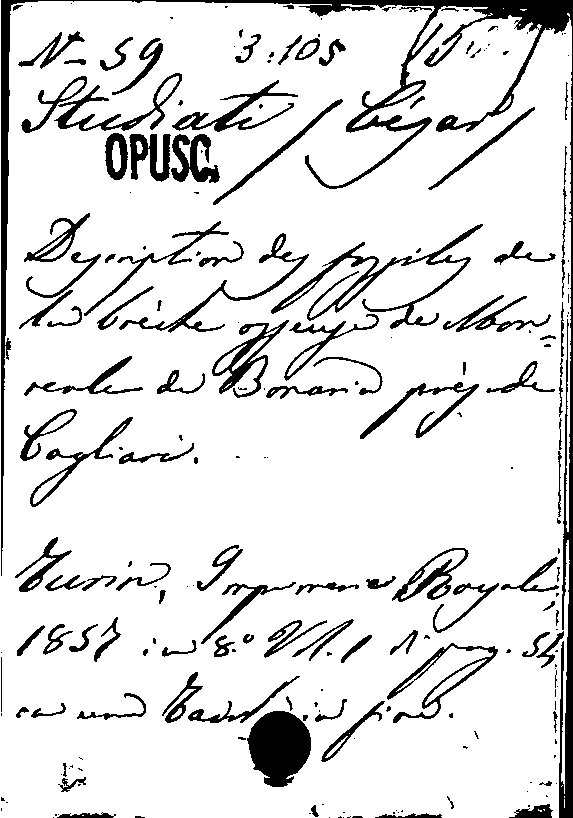 N- 59 3.105
Studiati / César /
OPUSC.
Description des fossiles de
la brèche osseuse de Mon=
reale de Bonaria près de
Cagliari.
Turin, Imprimerie Royale,
1857 in 8.° Vl. 1 di pag. 54
con una Tavola in fine.